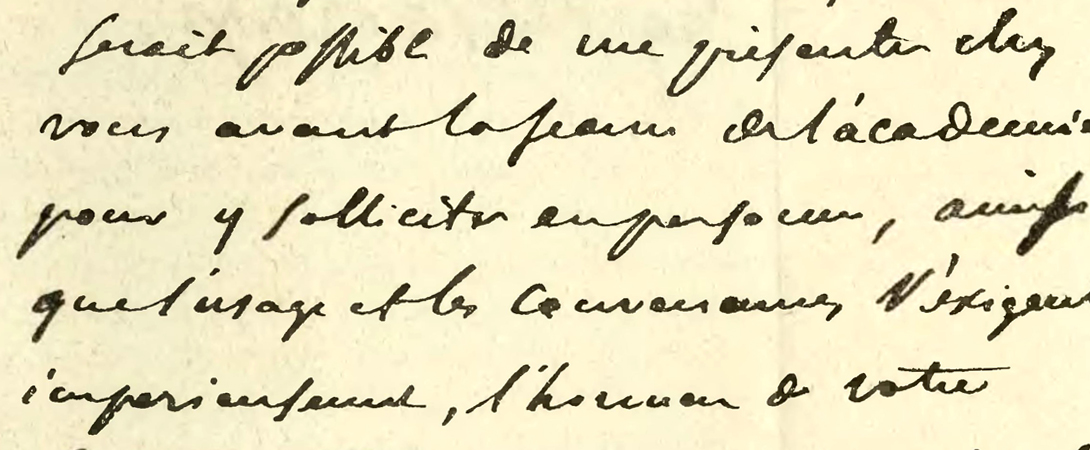 serait possible de me présenter chez
vous avant la séance de l'académie
pour y solliciter en personne, ainsi
que l'usage et les convenances l'exigent
impérieusement, l'honneur de votre